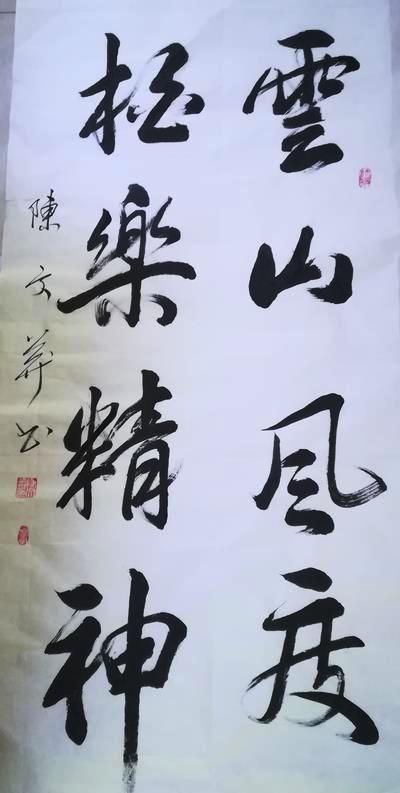 雲山風度
松樂精神
陳文書